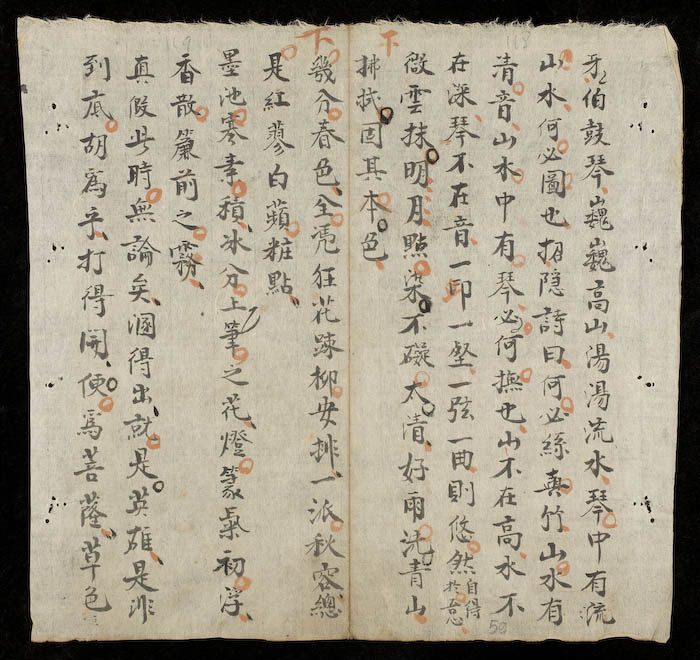 牙伯鼓琴、巍巍高山、湯湯流水、琴中有流
山水、何必圖也、招隐詩曰、何必絲與竹、山水有
清音、山水中有琴、必何撫也、山不在高、水不
在深、琴不在音、一邱一壑、一弦一曲、則悠然自得於
微雲抹明月、點染不礙太清、好雨洗青山、
拂拭固其本色
下
下
幾分春色、全凭狂花踈柳安排、一派秋容、總
是紅蓼白蘋粧點、
墨池寒素積、冰分上筆之花、燈篆氣初浮、
香散簾前之霧、
真假、此時無論矣、溷得出、就是英雄、是非
到底、胡爲乎、打得開、便爲菩薩、草色
50